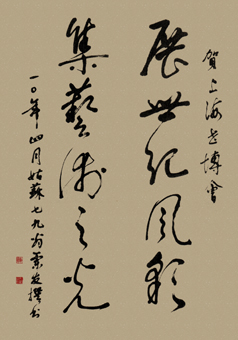 賀上海世博會
展世紀風彩
集藝術之光
一〇年四月姑蘇七九翁
撰书